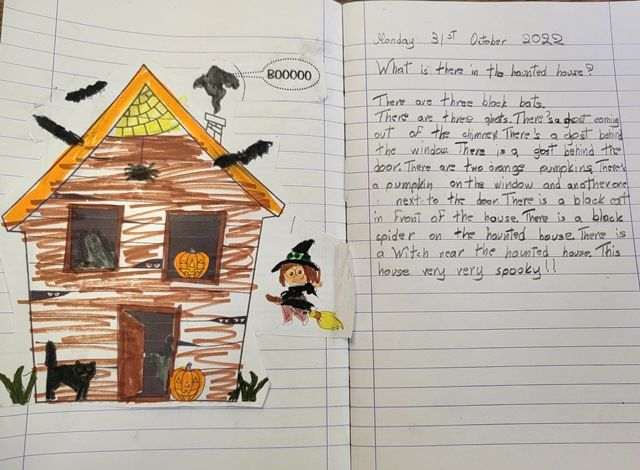 BOOOOO
Monday 31ST October 2022
What is there in the haunted house?
There are three black bats.
There are three ghots. There's a gost coming
out of the chimney. There's a gost behind
the window. There is a gost behind the
door. There are two orange pumpkins. There's
a pumpkin on the window and another one
next to the door. There is a black cat
in front of the house. There is a black
spider on the haunted house. There is
a Witch near the haunted house. This
house very very spooky!!